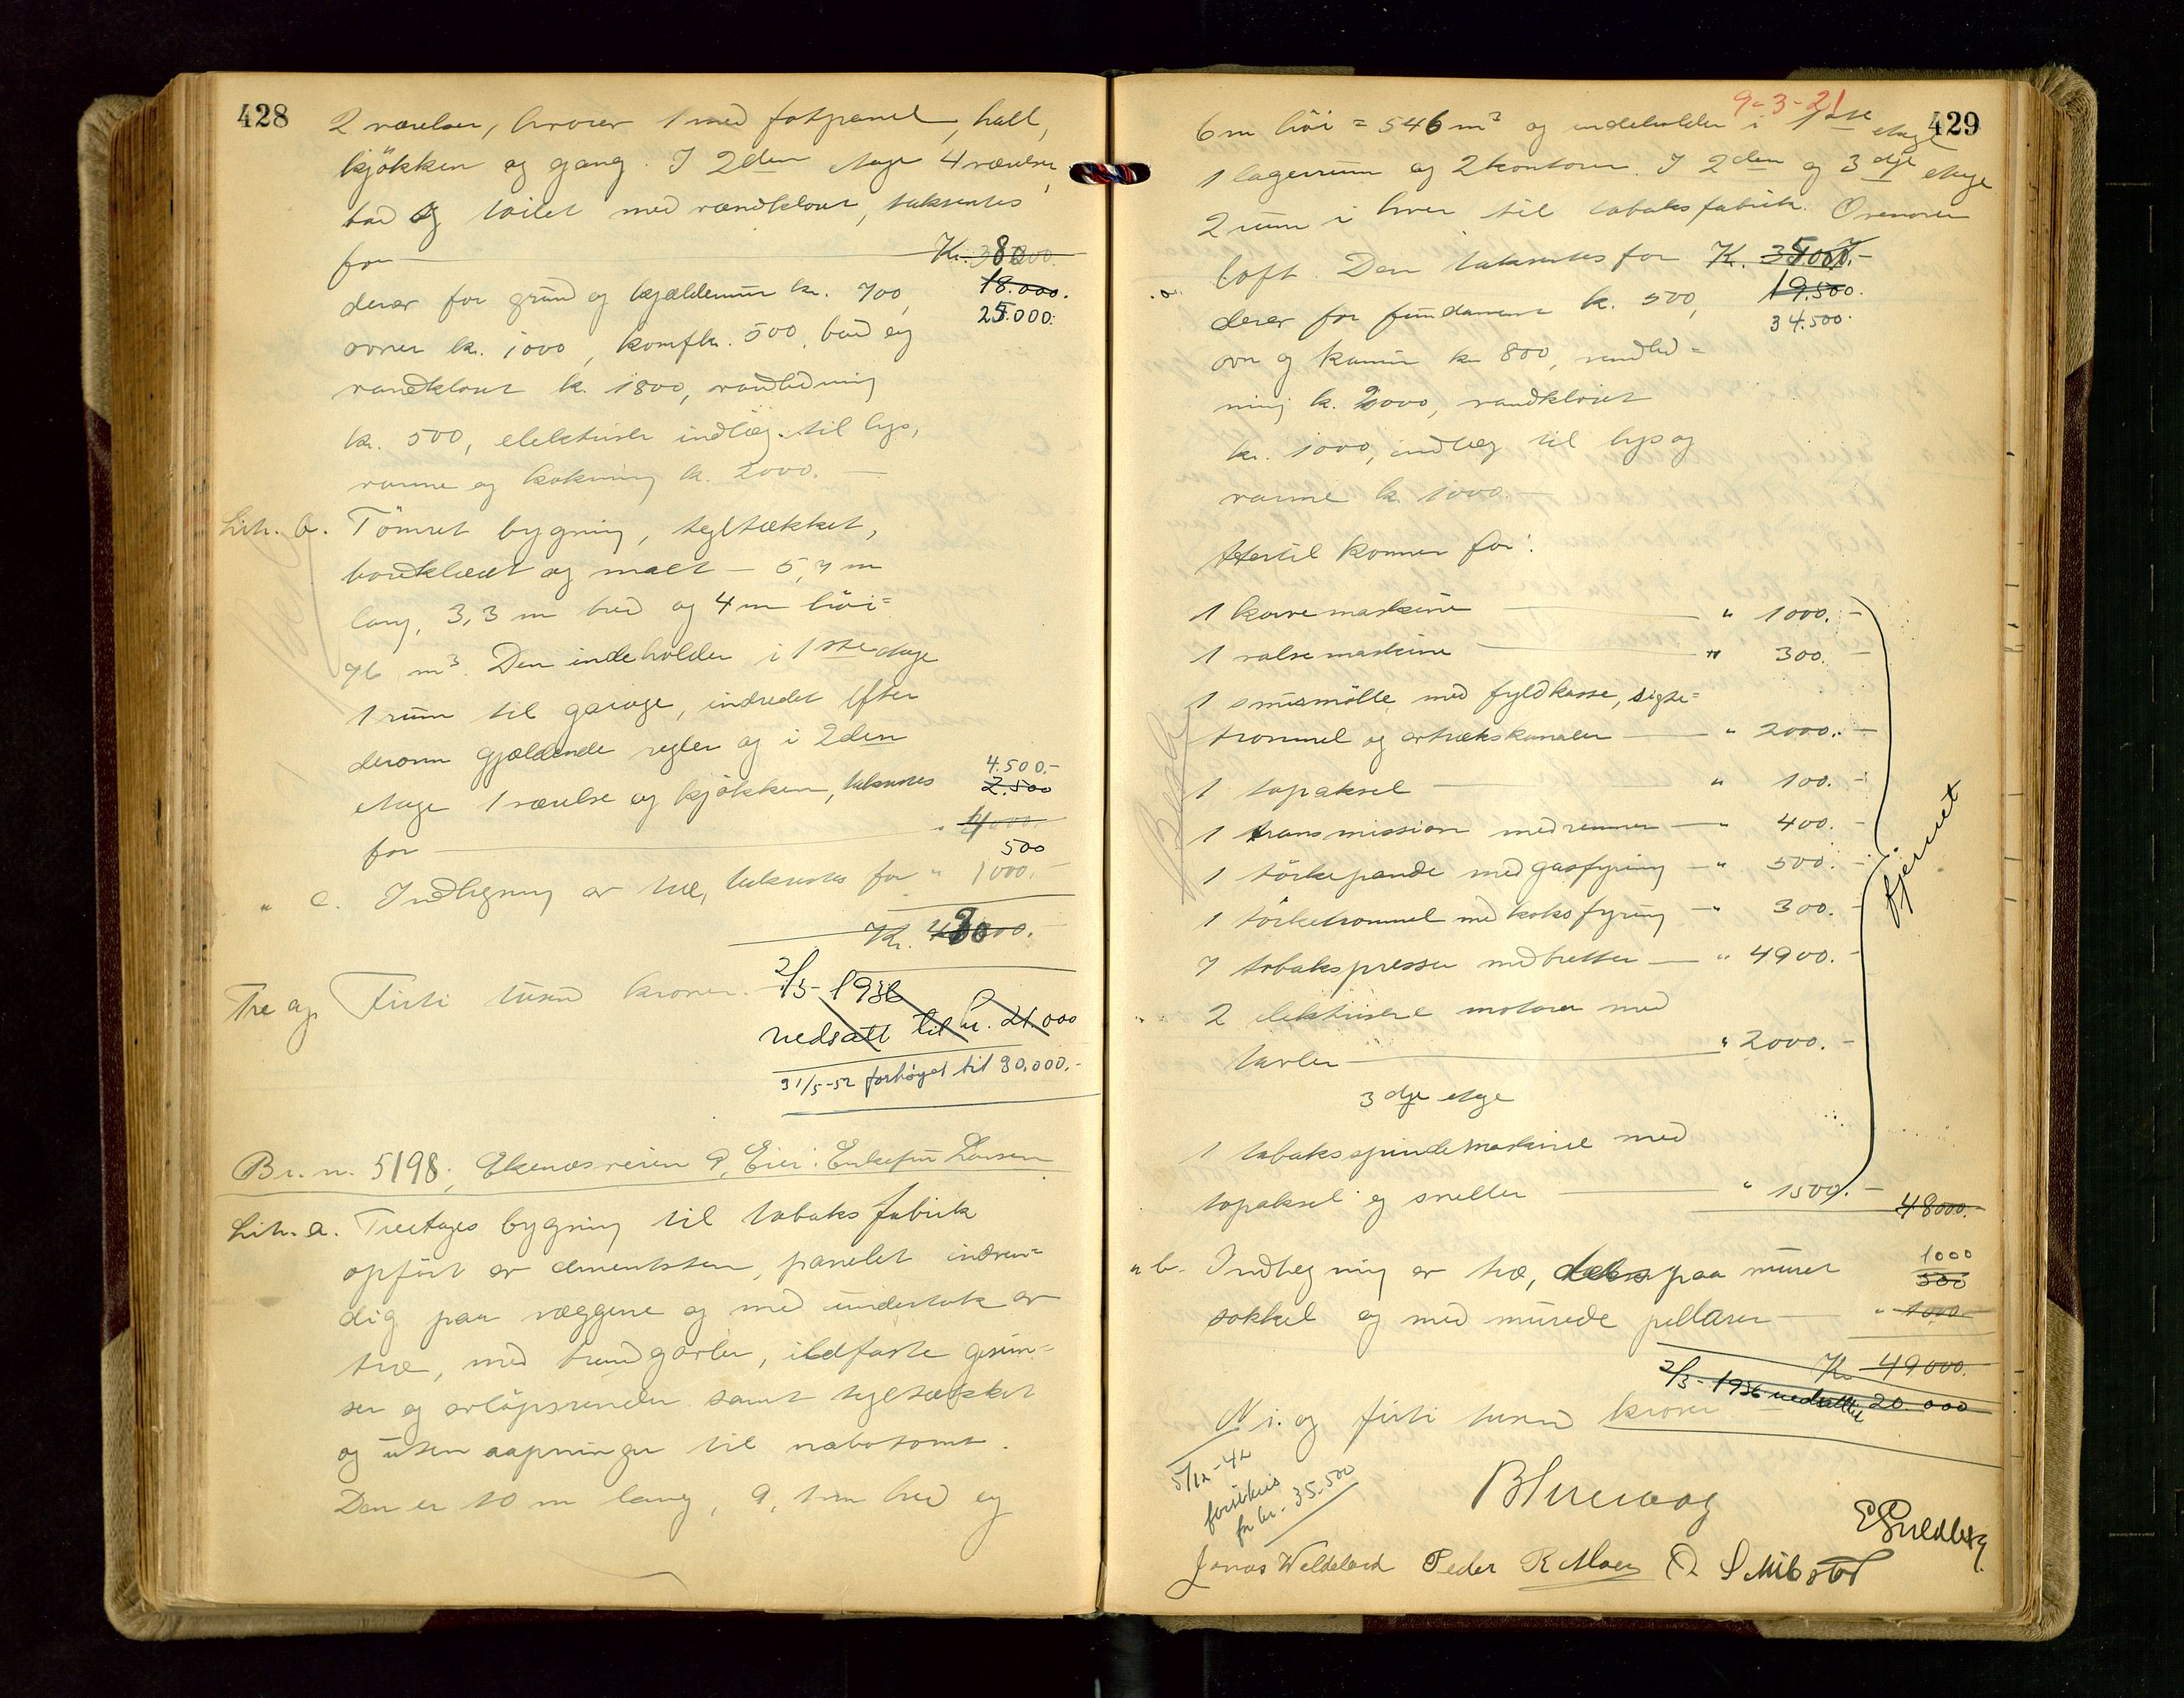 428
2 værelser, hvorav 1 med fotpanel, hall,
kjökken og gang. I 2den etage 4 værelser,
bad og toilet med vandkloset, taksertes
for Kr. 38000.
18.000.
derav for grund og kjældermur kr. 700, 25.000.
ovner kr. 1000, komfkr. 500, bad og
vandkloset kr. 1800, vandledning
kr. 500, elektrisk indlæg til lys,
varme og kokning kr. 2000. —
Lit. b. Tömret bygning, tegltækket,
bordklædt og malt — 5,7 m
lang, 3,3 m bred og 4 m höi =
76 m³. Den indeholder i 1ste etage
1 rum til garage, indredet efter
derom gjældende regler og i 2den
4.500.-
etage 1 værelse og kjökken, taksertes 2.500
for " 4000.
500
" c. Indhegning av træ, taksertes for " 1000.-
Kr. 43000.
Tre og Firti tusind kroner.
2/5- 1936
nedsatt til kr. 21.000
31/5-52 forhöyet til 30.000.-
Br. n. 5198, Ekenæsveien 9, Eier: Enkefru Larsen
Lit. a. Treetages bygning til tobaksfabrik
opfört av cementsten, panelet indven-
dig paa væggene og med undertak av
træ, med brandgavler, ildfaste gesim-
ser og avlöpsrender samt tegltækket
og uten aapninger til nabotomt.
Den er 10 m lang, 9,1 m bred og
9-3-21
429
6 m höi = 546 m³ og indeholder i 1ste etage
1 lagerrum og 2 kontorer. I 2den og 3dje etage
2 rum i hver til tobaksfabrik. Ovenover
loft. Den taksertes for Kr. 35000.-
a. 19.500.
derav for fundament kr. 500, 34.500.
ovn og kamin kr. 800, vandled-
ning kr. 2000, vandkloset
kr. 1000, indlæg til lys og
varme kr. 1000. —
Hertil kommer for:
1 karvemaskine " 1000.-
1 valsemaskine " 300.-
1 snusmölle med fyldkasse, sigte-
trommel og avtrækskanaler " 2000.-
1 topaksel " 100.-
1 transmission med remmer " 400.-
1 törkepande med gasfyring " 500.-
1 törketrommel med koksfyring " 300.-
7 tobakspresser med bretter " 4900.-
2 elektriske motorer med
tavler " 2000.-
fjernet
3dje etage
1 tobakspindemaskine med
topaksel og sneller " 1500.- 48000.-
" b. Indhegning av træ, paa muret 1000
500
sokkel og med murede pillarer " 1000.-
Kr. 49000.
2/5- 1936 nedsatt til 20.000
Ni og firti tusind kroner
5/12-42
for kr. 35.500
E Guldberg
Jonas Peder R. Moen